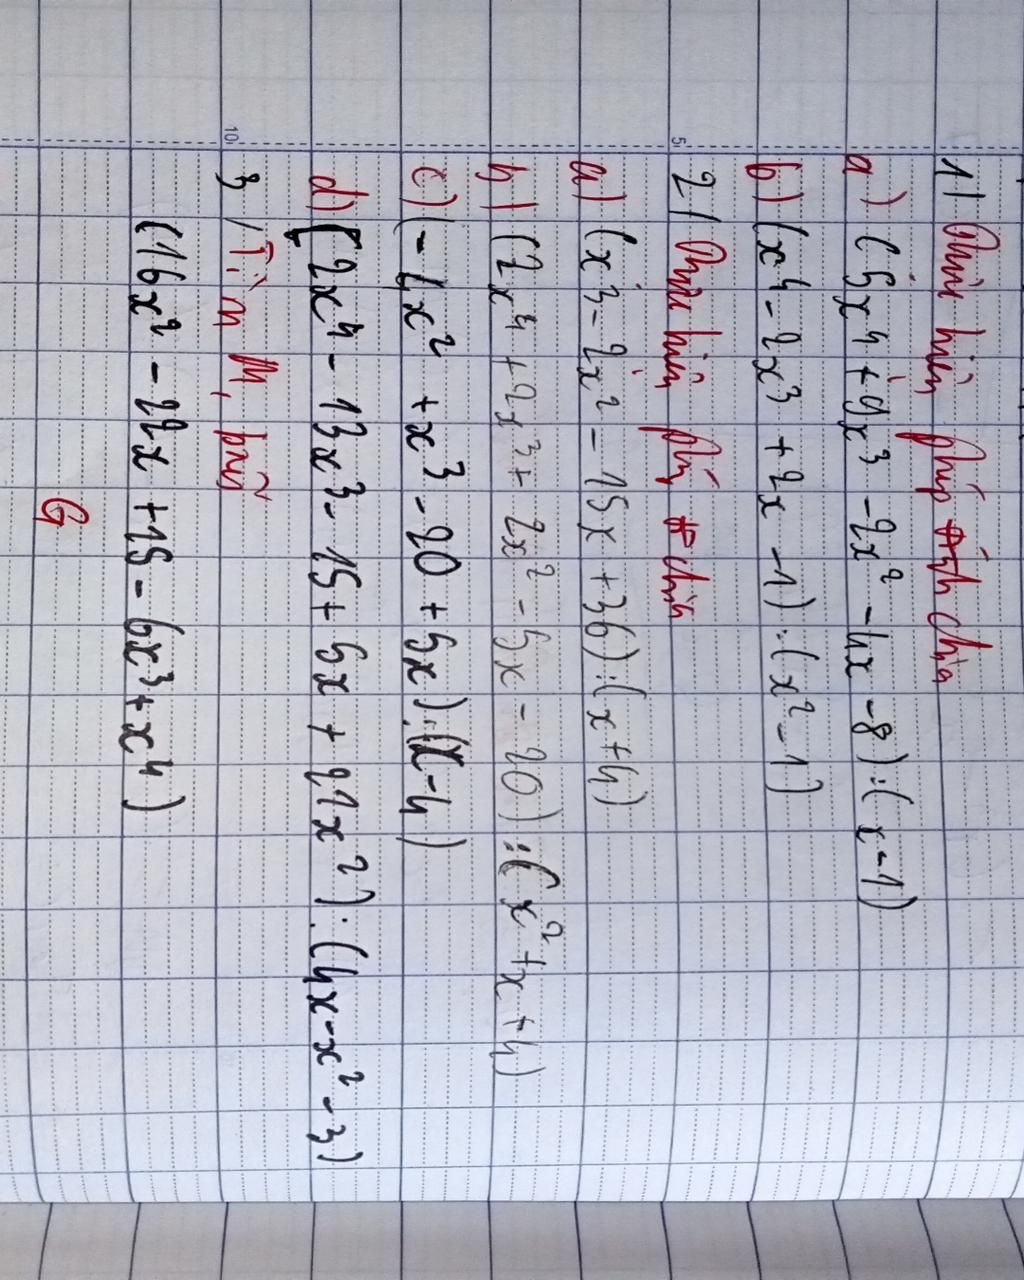 1) Thực hiện phép tính chia
a) (5x⁴ + 9x³ - 2x² - 4x - 8) : (x - 1)
b) (x⁴ - 2x³ + 2x - 1) : (x² - 1)
5
2) Thực hiện phép chia
a) (x³ - 2x² - 15x + 36) : (x + 4)
b) (2x⁴ + 2x³ + 2x² - 5x - 20) : (x² + x + 4)
c) (- 4x² + x³ - 20 + 5x) : (x - 4)
d) (2x⁴ - 13x³ - 15 + 5x + 21x²) : (4x - x² - 3)
10
3) Tìm
(16x² - 22x + 15 - 6x³ + x⁴)
G